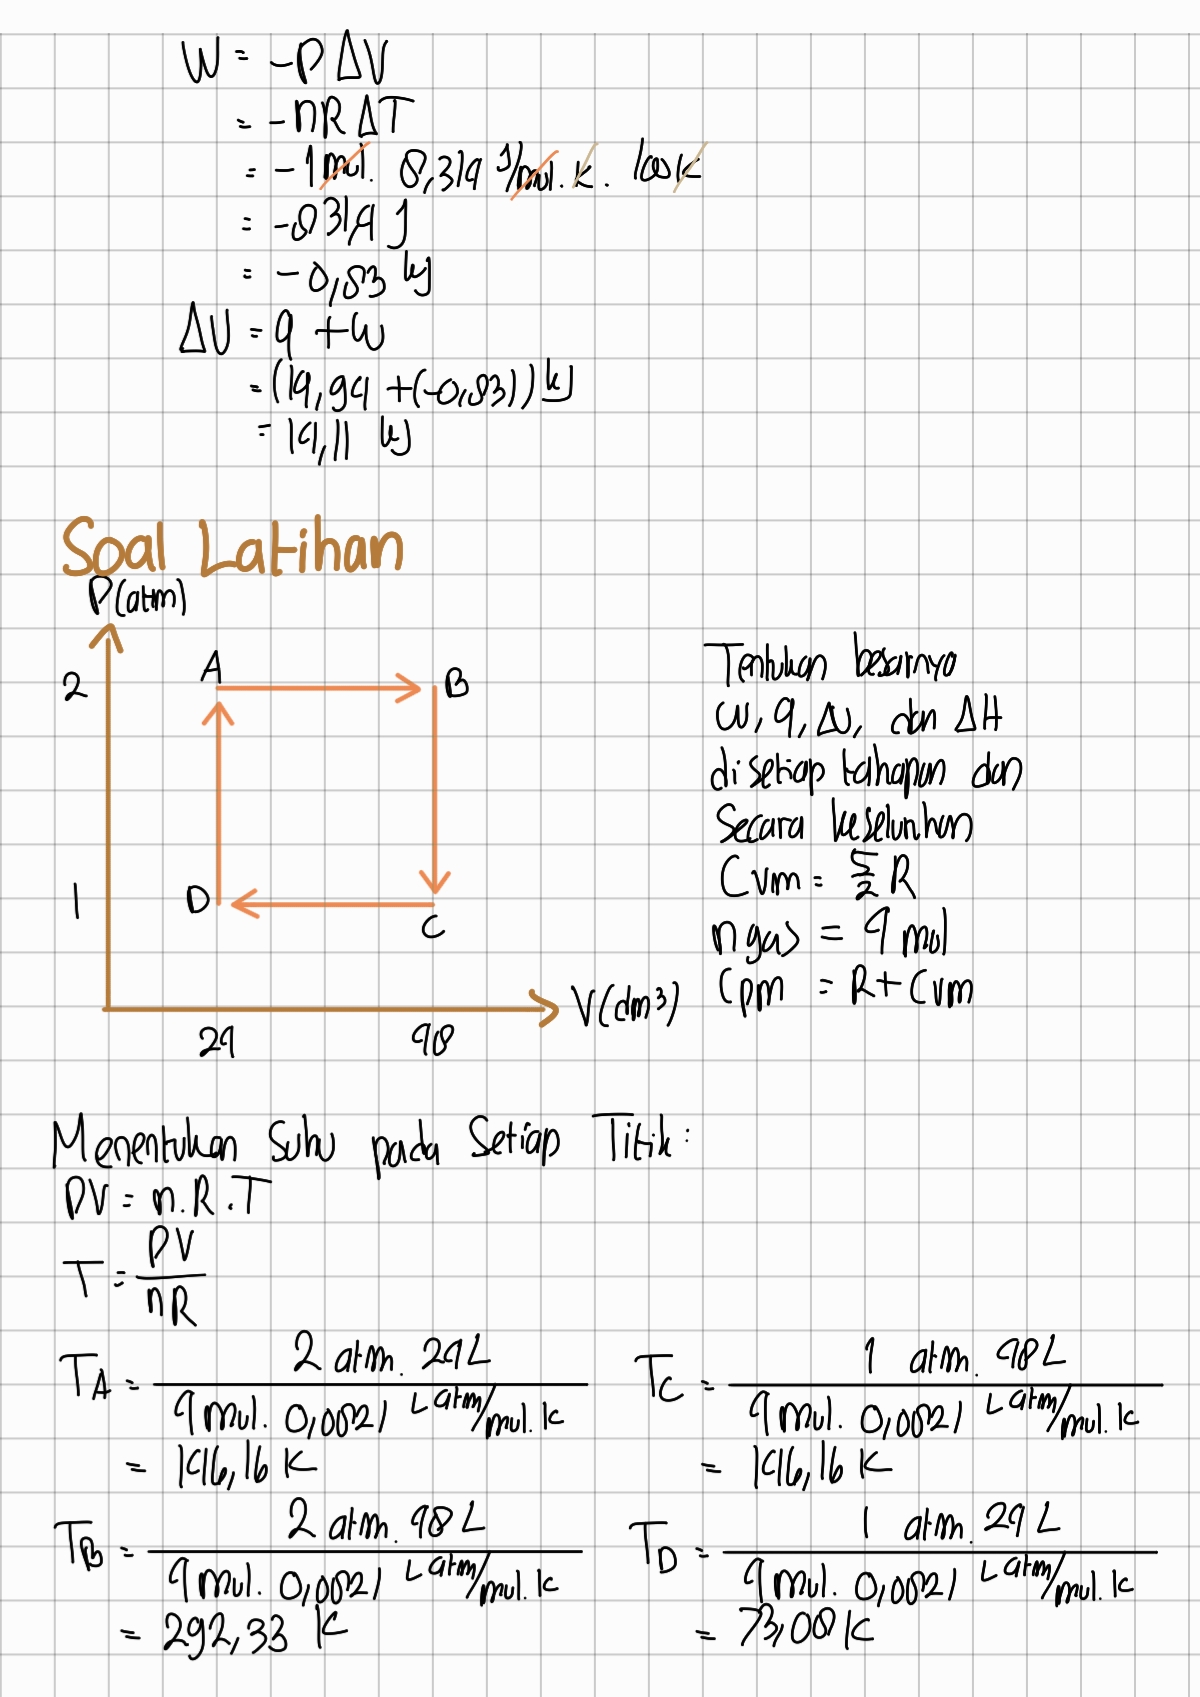 W = -P ΔV
= -nR ΔT
= -1 mol. 8,314 J/mol.K. 100K
= -831,4 J
= -0,83 kJ
ΔU = q + w
= (14,94 + (-0,83)) kJ
= 14,11 kJ
Soal Latihan
P(atm)
2
A
B
1
D
C
24
48
V(dm³)
Tentukan besarnya
w, q, Δu, dan ΔH
disetiap tahapan dan
Secara keseluruhan
Cvm = 5/2 R
n gas = 4 mol
Cpm = R + Cvm
Menentukan Suhu pada Setiap Titik:
PV = n.R.T
T = PV/nR
TA = 2 atm. 24L / 4 mol. 0,0821 L atm/mol.K
= 146,16 K
TB = 2 atm. 48L / 4 mol. 0,0821 L atm/mol.K
= 292,33 K
TC = 1 atm. 48L / 4 mol. 0,0821 L atm/mol.K
= 146,16 K
TD = 1 atm. 24L / 4 mol. 0,0821 L atm/mol.K
= 73,08 K